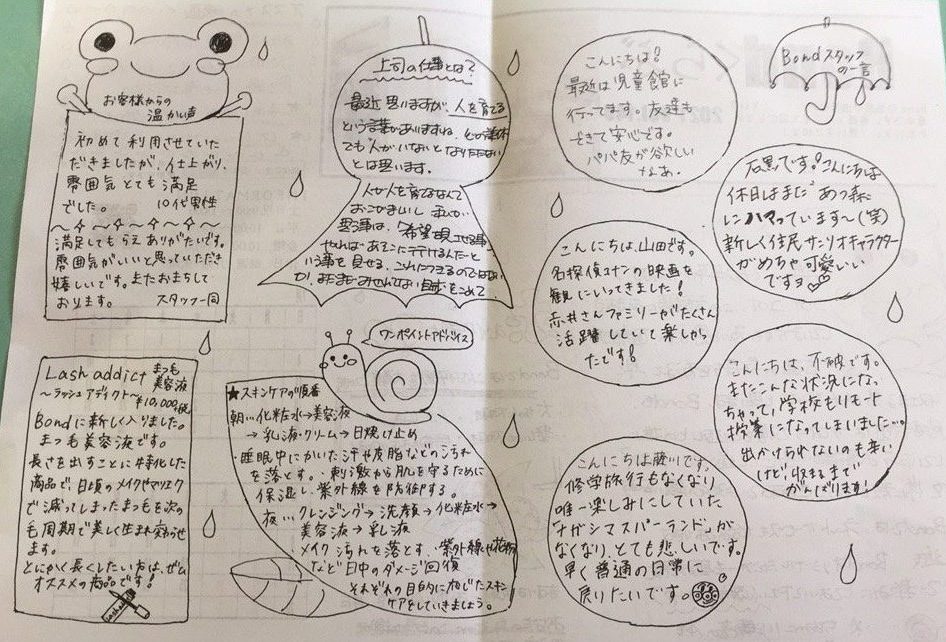 お客様からの
温かい声
初めて利用させていた
だきましたが、仕上がり、
雰囲気とても満足
でした。 10代男性
満足してもらえありがたいです。
雰囲気がいいと思っていただき
嬉しいです。またおまちして
おります。 スタッフ一同
Lash addict まつも
美容液
〜ラッシュアディクト〜
¥10,000税
Bondに新しく入りました。
まつ毛美容液です。
長さを出すことに特化した
商品で、日頃のメイクやマツエク
で減ってしまったまつもを次の
毛周期で美しく生まれ変わらせ
ます。
とにかく長くしたい方は、ぜひ
オススメの商品です!
Lash addict
上司の仕事とは?
最近思いますが、人を育てる
という言葉がありますね、
でも人がいないとなりたたない
とは思います。
人が人を育てるなんて
おこがましいし
希望
やればあそこに行けるんだと
いう事を見せる、
ワンポイントアドバイス
★スキンケアの順番
朝…化粧水→美容液
→乳液・クリーム→日焼け止め
・睡眠中にかいた汗や皮脂などのよごれ
を落とす。・刺激から肌を守るために
保湿し、紫外線を防御する。
夜…クレンジング→洗顔→化粧水→
美容液→乳液
・メイク汚れを落とす・紫外線や花粉
など日中のダメージ回復
それぞれの目的に応じたスキン
ケアをしていきましょう。
Bondスタッフ
の一言
こんにちは?
最近は児童館に
行ってます。友達も
できて安心です。
パパ友が欲しい
なぁ。
石黒です!こんにちは
休日はまだ あつ森
にハマっています〜(笑)
新しく住民サンリオキャラクター
がめちゃ可愛いい
ですョ
こんにちは、山田です。
名探偵コナンの映画を
観にいってきました!
赤井さんファミリーがたくさん
活躍していて楽しかっ
たです!
またこんな状況にな。
ちゃって、学校もリモート
授業になってしまいました…。
出かけられないのも辛い
けど、収まるまで
がんばります!
こんにちは藤川です。
修学旅行もなくなり
唯一楽しみにしていた
「ナガシマスパーランド」が
なくなり、とても悲しいです。
早く普通の日常に
戻りたいです。